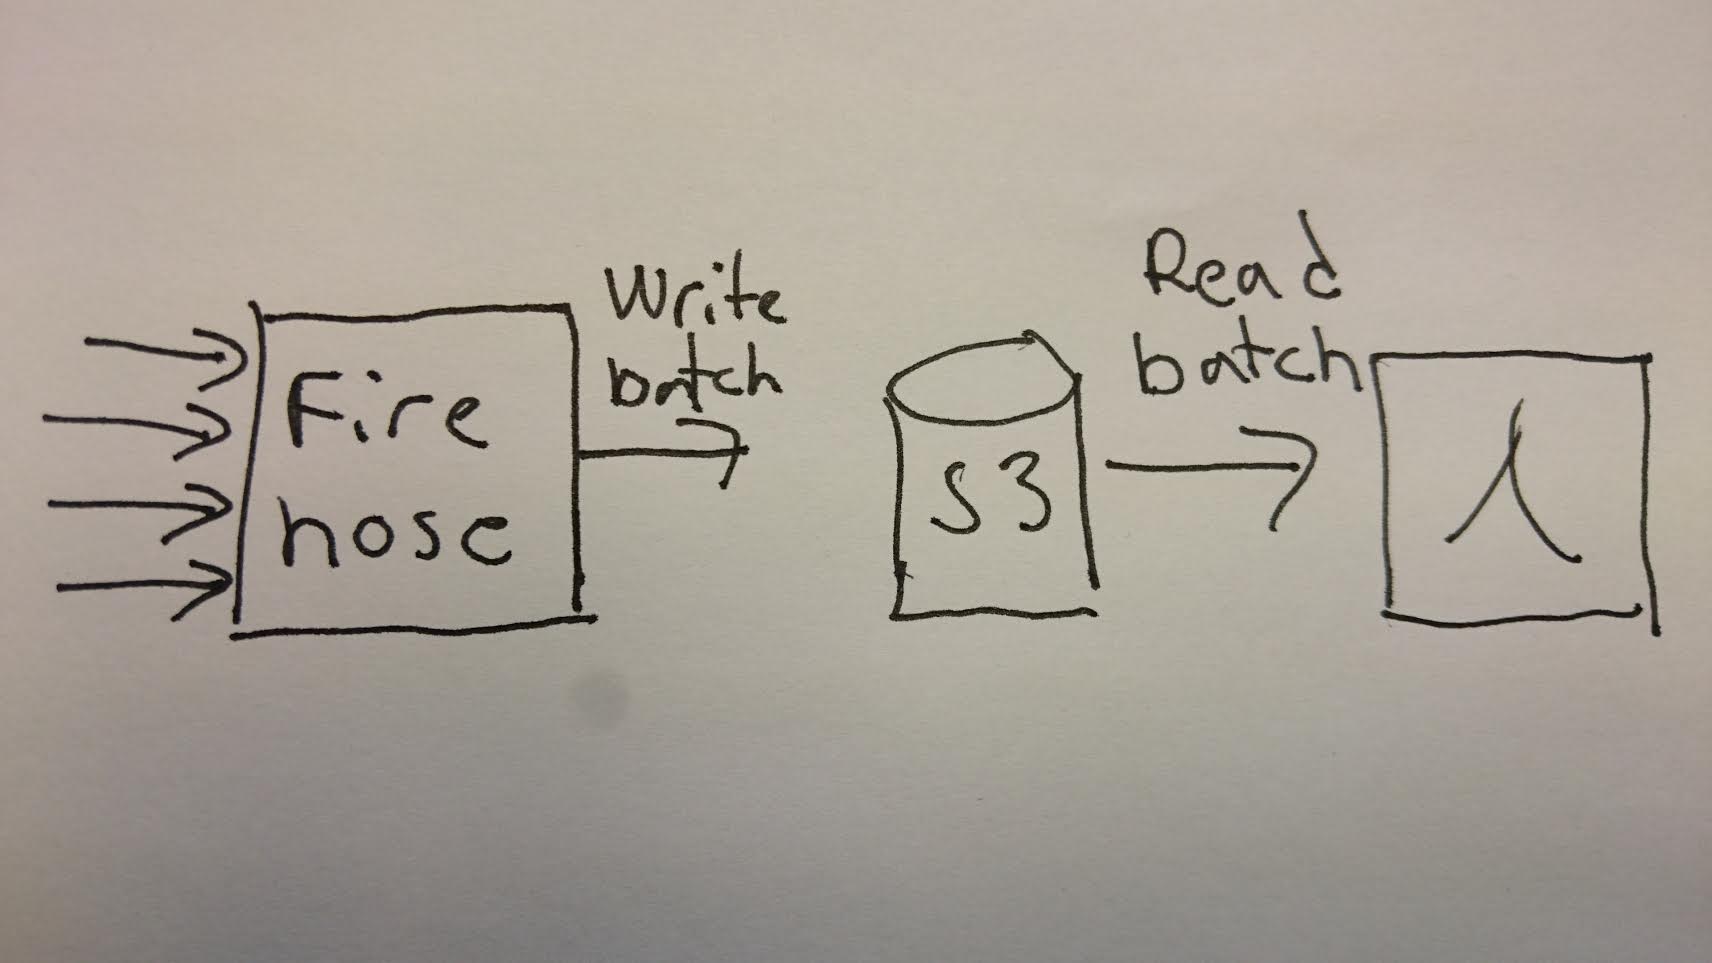 Fire
hose
Write
batch
S3
Read
batch
λ